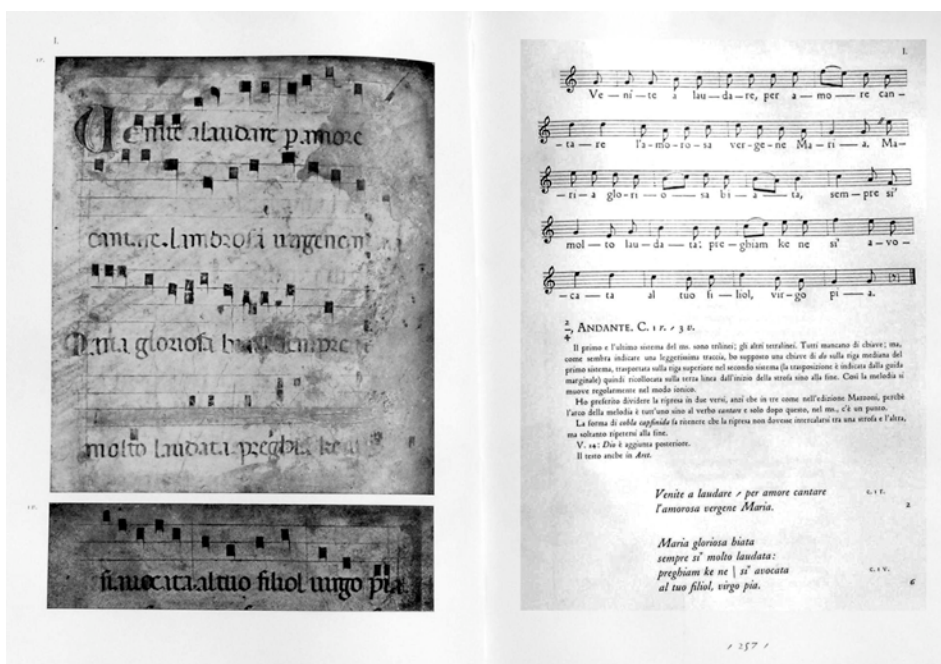 I.
Venite alaudare p amore
cantare. Lamorosa uergene m
Maria gloriosa biata sempre si
molto laudata. preghia ke ne si
si auocata. al tuo filiol uirgo pia
I.
Ve — ni — te a lau — da — re, per a — mo — re can —
— ta — re l'a — mo — ro — sa ver — ge — ne Ma — ri — a. Ma —
— ri — a glo — ri — o — sa bi — a — ta, sem — pre si'
mol — to lau — da — ta: pre — ghiam ke ne si' a — vo —
— ca — ta al tuo fi — liol, vir — go pi — a.
2/4 ANDANTE. C. 1 r. / 3 v.
Il primo e l'ultimo sistema del ms. sono trilinei; gli altri tetralinei. Tutti mancano di chiave; ma,
come sembra indicare una leggerissima traccia, ho supposto una chiave di do sulla riga mediana del
primo sistema, trasportata sulla riga superiore nel secondo sistema (la trasposizione è indicata dalla guida
marginale) quindi ricollocata sulla terza linea dall'inizio della strofa sino alla fine. Così la melodia si
muove regolarmente nel modo ionico.
Ho preferito dividere la ripresa in due versi, anzi che in tre come nell'edizione Mazzoni, perchè
l'arco della melodia è tutt'uno sino al verbo cantare e solo dopo questo, nel ms., c'è un punto.
La forma di cobla capfinida fa ritenere che la ripresa non dovesse intercalarsi tra una strofa e l'altra,
ma soltanto ripetersi alla fine.
V. 14: Dio è aggiunta posteriore.
Il testo anche in Aret.
Venite a laudare / per amore cantare c. 1 r.
l'amorosa vergene Maria. 2
Maria gloriosa biata
sempre si' molto laudata:
preghiam ke ne | si' avocata c. 1 v.
al tuo filiol, virgo pia. 6
/ 257 /